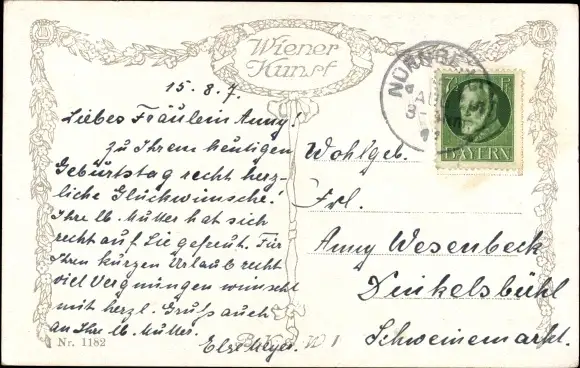 Wiener
Kunst
15. 8. 7.
Liebes Fräulein Anny!
zu Ihrem heutigen
Geburtstag recht herz-
liche Glückwünsche!
Ihre lb. Mutter hat sich
recht auf Sie gefreut. Für
Ihren kurzen Urlaub recht
viel Vergnügen wünscht
mit herzl. Gruß auch
an Ihre lb. Mutter.
Else Meyer.
Nr. 1182
B. K. W. I
NÜRNBE
AUG
7½
BAYERN
Wohlgeb.
Frl.
Anny Wesenbeck
Dinkelsbühl
Schweinemarkt.